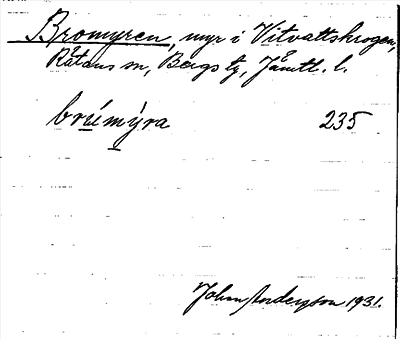 Bromyren, myr i Vitvattskrogen,
Råtans sn, Bergs tg, Jämtl. l.
brúmýra 235
Johan Anderzson 1931.